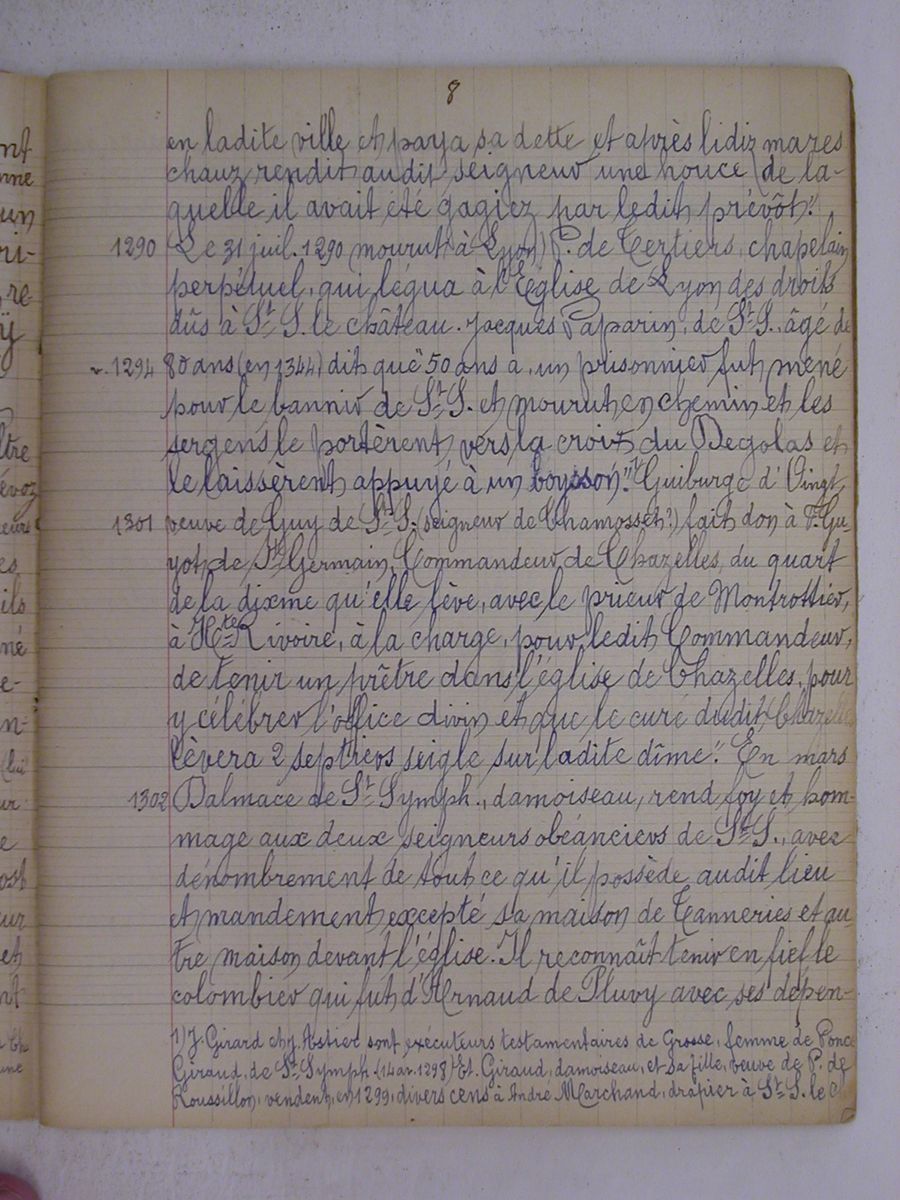 8
en ladite ville et paya sa dette et après lidiz mares
chauz rendit audit seigneur une houce (de la-
quelle il avait été gagiez par ledit prévôt."
1290 Le 31 juil. 1290 mourut à Lyon P. de Tertiers, chapelain
perpétuel, qui légua à l'Eglise de Lyon des droits
dûs à St. S. le château. Jacques Paparin, de St. S., âgé de
v. 1294 80 ans (en 1344) dit que "50 ans a, un prisonnier fut mené
pour le bannir de St. S. et mourut en chemin et les
sergens le portèrent vers la croix du Degolas et
le laissèrent appuyé à un boysson". 1) Guiburge d'Oingt,
1301 veuve de Guy de St. S. (seigneur de Chamosset?) fait don à F. Gu-
yot de St. Germain, Commandeur de Chazelles, du quart
de la dixme qu'elle lève, avec le prieur de Montrottier,
à Hte Rivoire, à la charge, pour ledit Commandeur,
de tenir un prêtre dans l'église de Chazelles, pour
y célébrer l'office divin et que le curé dudit Chazelles
lèvera 2 septiers seigle sur ladite dîme." En mars
1302 Dalmace de St. Symph., damoiseau, rend foy et hom-
mage aux deux seigneurs obéanciers de St. S., avec
dénombrement de tout ce qu'il possède audit lieu
et mandement excepté sa maison de Tanneries et au
tre maison devant l'église. Il reconnaît tenir en fief le
colombier qui fut d'Arnaud de Pluvy avec ses dépen-
1) J. Girard et J. Astier sont exécuteurs testamentaires de Grosse, femme de Ponce
Giraud, de St. Symph. (14 av. 1298) Et. Giraud, damoiseau, et sa fille, veuve de P. de
Roussillon, vendent, en 1299, divers cens à André Marchand, drapier à St. S. le